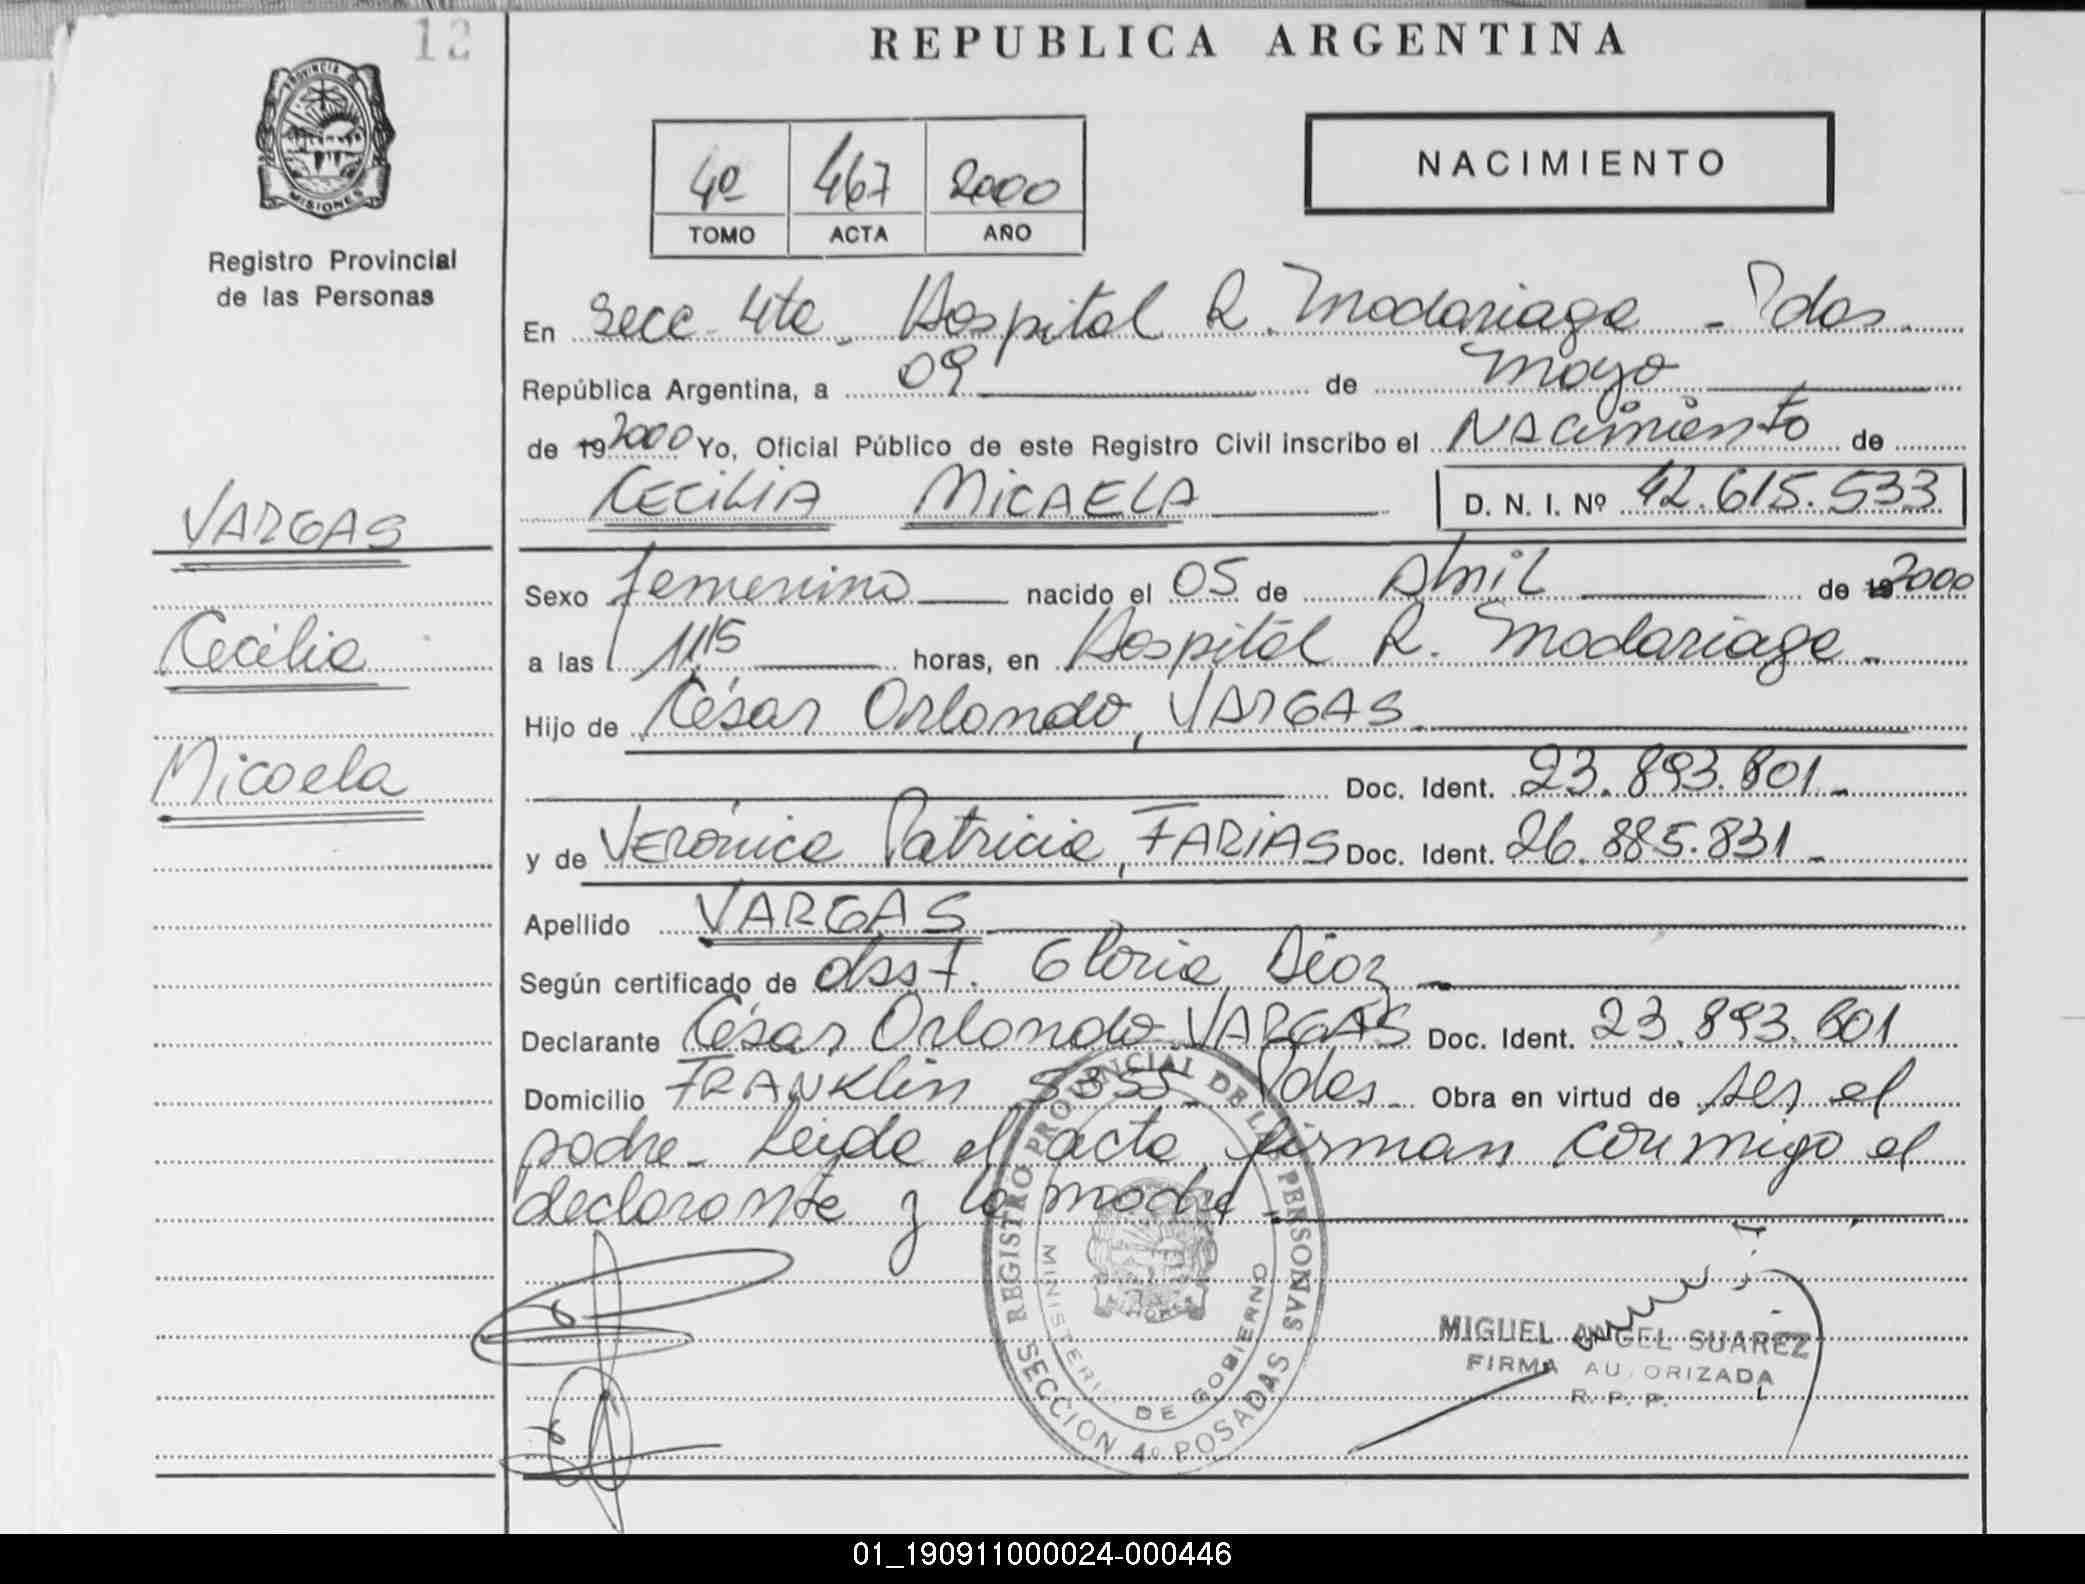 12
REPUBLICA ARGENTINA
PROVINCIA DE
MISIONES
Registro Provincial
de las Personas
4º 467 2000
TOMO ACTA AÑO
NACIMIENTO
En Secc. 4ta - Hospital R. Madariaga - Pdas.
República Argentina, a 09 de Mayo
de 19 2000 Yo, Oficial Público de este Registro Civil inscribo el NACimiento de
CECILIA MICAELA D. N. I. Nº 42.615.533
VARGAS
Cecilia
Micaela
Sexo femenino nacido el 05 de Abril de 19 2000
a las 11,15 horas, en Hospital R. Madariaga -
Hijo de César Orlando, VARGAS
Doc. Ident. 23.893.801 -
y de Verónica Patricia, FARIAS Doc. Ident. 26.885.831 -
Apellido VARGAS
Según certificado de obst. Gloria Díaz -
Declarante César Orlando VARGAS Doc. Ident. 23.893.801
Domicilio FRANKlin Pdas - Obra en virtud de ser el
padre - Leída el acta, firman conmigo el
declarante y la madre -
REGISTRO PROVINCIAL DE LAS PERSONAS
MINISTERIO DE GOBIERNO
SECCION 4º POSADAS
MIGUEL ANGEL SUAREZ
FIRMA AUTORIZADA
R. P. P.
01_190911000024-000446